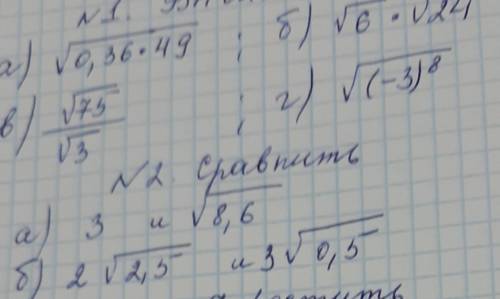 N1.
а) √0,36·49 ; б) √6 · √24
в) √75/√3 ; г) √(-3)⁸
N2. Сравнить
а) 3 и √8,6
б) 2√2,5 и 3√0,5